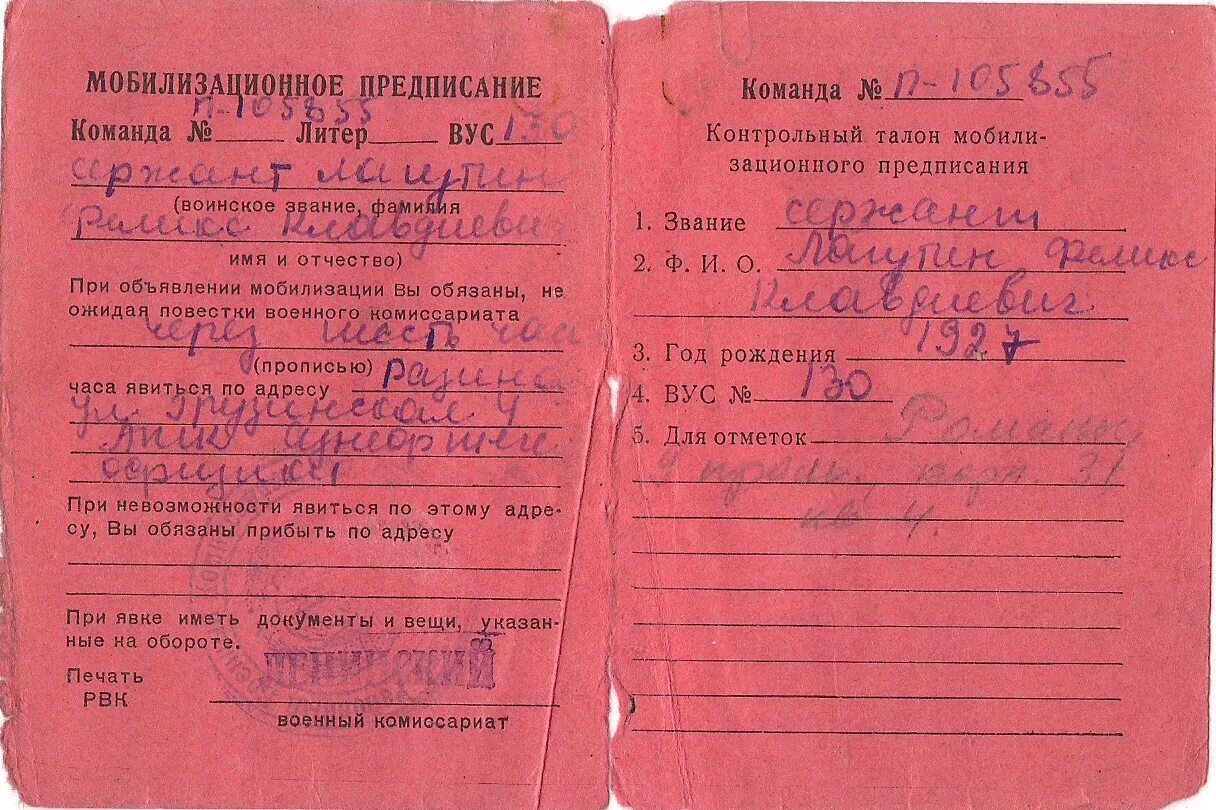 МОБИЛИЗАЦИОННОЕ ПРЕДПИСАНИЕ
П-105855
Команда № Литер ВУС 130
сержант Лагутин
(воинское звание, фамилия
Феликс Клавдиевич
имя и отчество)
При объявлении мобилизации Вы обязаны, не
ожидая повестки военного комиссариата
через шесть час
(прописью)
часа явиться по адресу Разина
ул Грузинская 4
При невозможности явиться по этому адре-
су, Вы обязаны прибыть по адресу
При явке иметь документы и вещи, указан-
ные на обороте.
ЛЕНИНСКИЙ
Печать
РВК
военный комиссариат
Команда № П-105855
Контрольный талон мобили-
зационного предписания
1. Звание сержант
2. Ф. И. О. Лагутин Феликс
Клавдиевич
3. Год рождения 1927
4. ВУС № 130
5. Для отметок
31
кв 4.